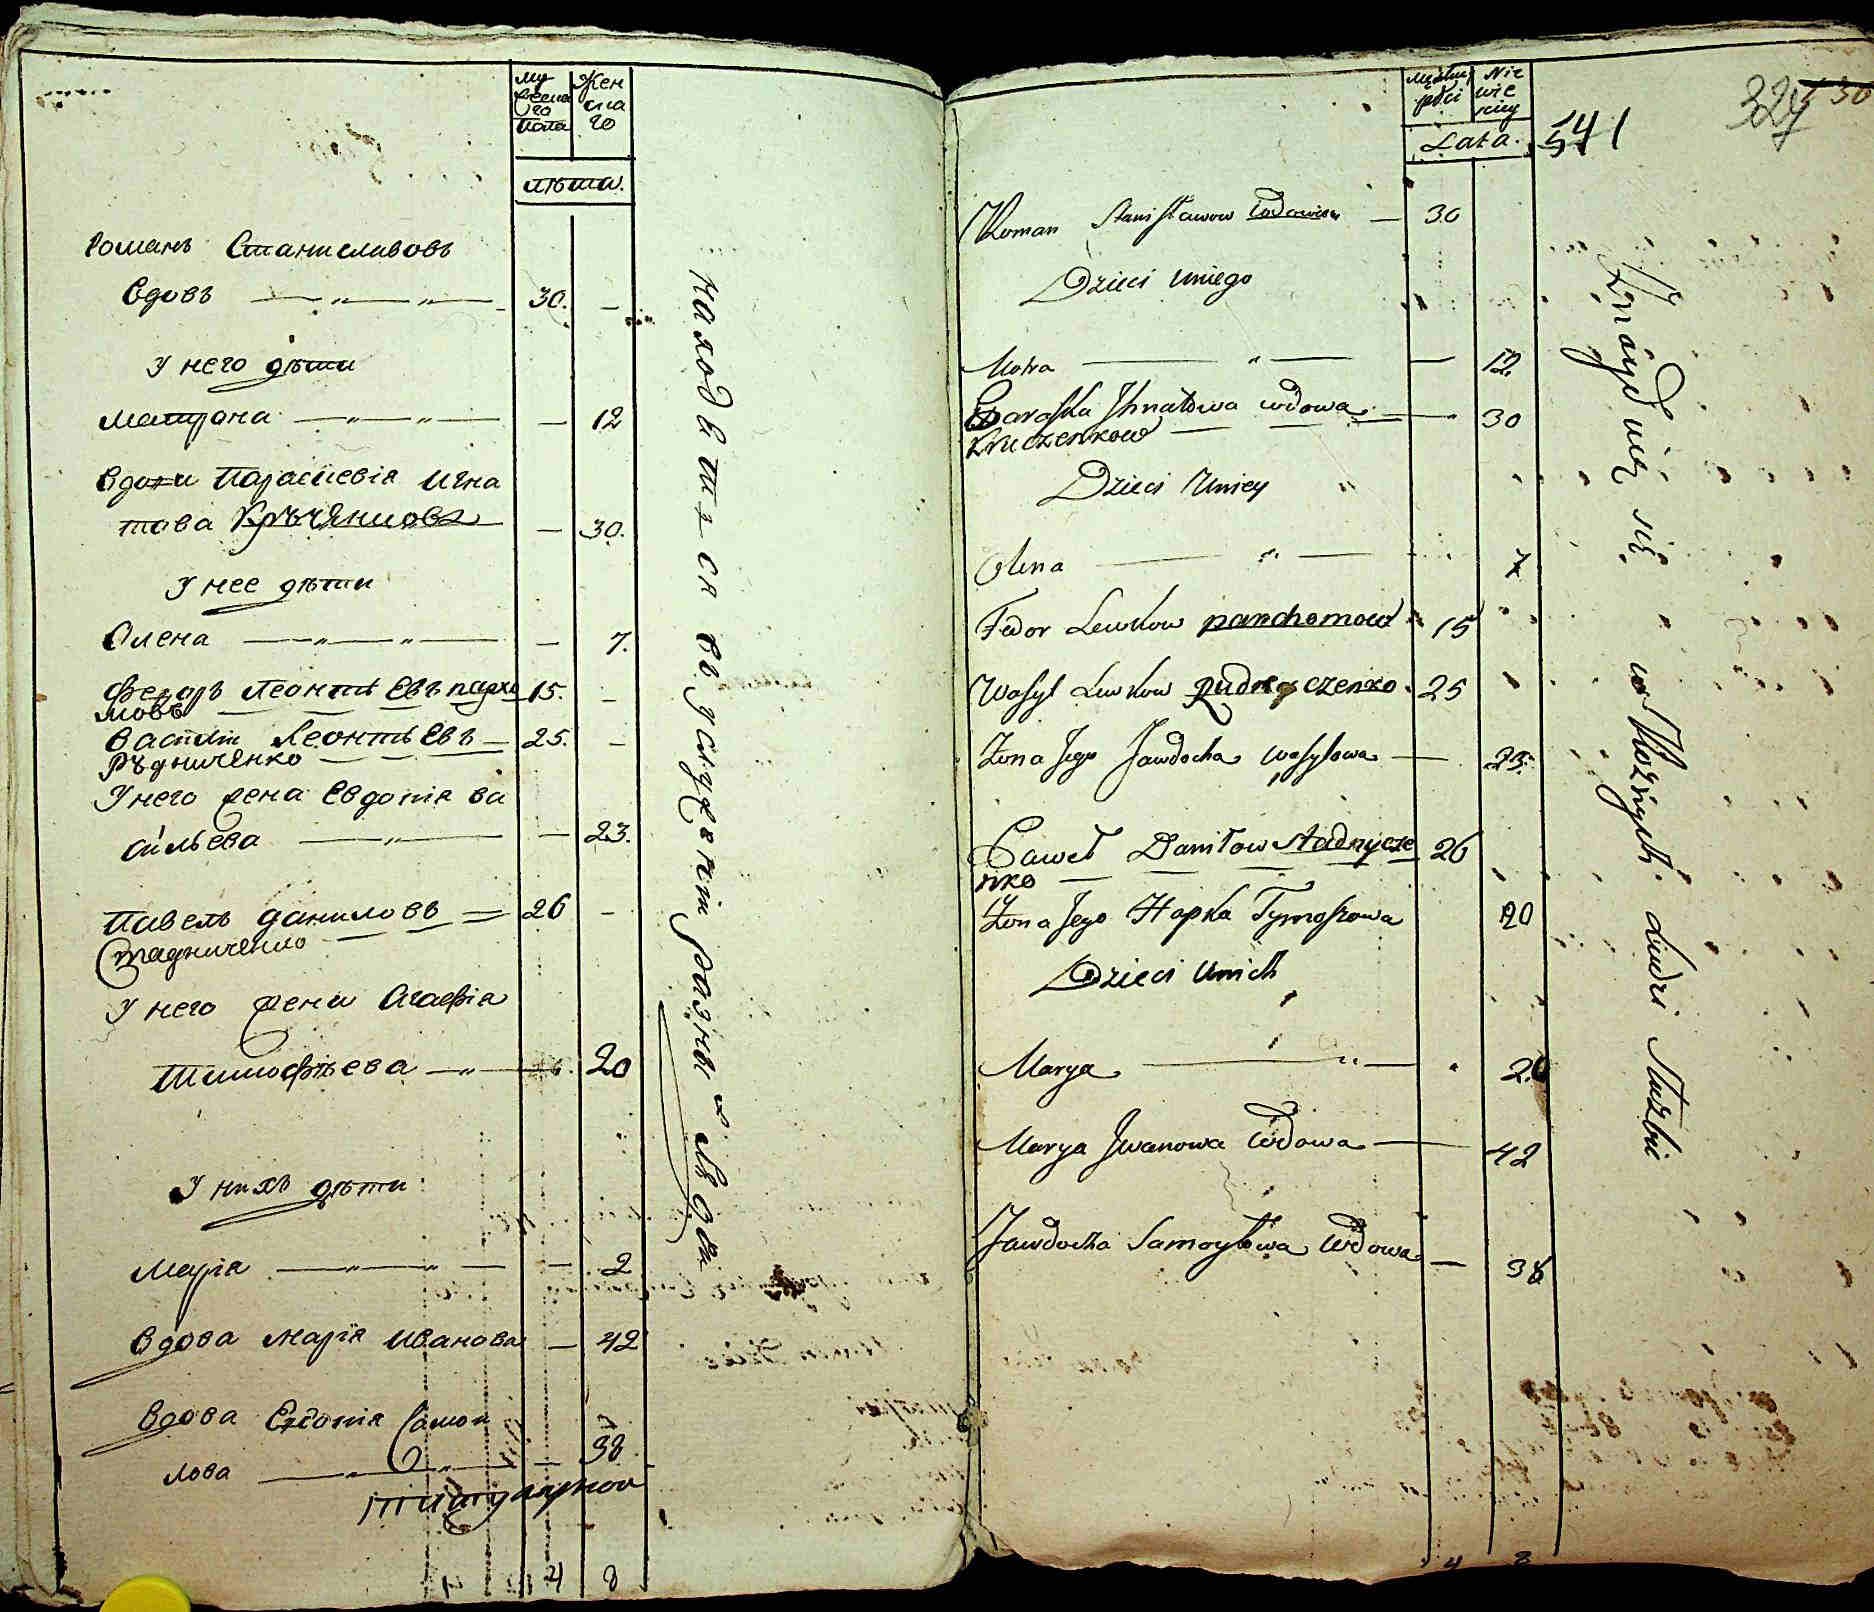 Му
жеска
го
пола
Жен
ска
го
лѣта.
Романъ Станиславовъ
вдовъ — „ — „ — 30. —
У него дѣти
Матрона — „ — „ — — 12
вдова Параскевія Игна
това Кръчѣнкова — 30.
У нее дѣти
Олена — „ — „ — — 7.
Федоръ Леонтіевъ пархо 15. —
мовъ
Василіи Леонтьевъ — 25. —
Рудниченко
У него жена Евдокія ва
сильева — „ — — 23.
Павелъ даниловъ 26 —
Стадниченко
У него жена Агафія
Тимофѣева — „ — 20
У нихъ дѣти
Марія — „ — „ — — 2
вдова марія Иванова — 42
вдова Евдокія Самои
лова — „ — „ — — 38
4 8
находятся въ услуженіи разны
люди
męzkiey
płci
Nie
wie
skiey
Lata.
541
324
30
Roman Stanisławow wdowiec — 30
Dzieci Uniego
Motra — „ — — 12
Paraska Ihnatowa wdowa — 30
kruczenkowa
Dzieci Uniey
Olena — „ — 7
Fedor Lewkow parchomow 15
Wasyl Lewkow Rudnyczenko 25
Żona Jego Jawdocha Wasylowa — 23.
Paweł Daniłow stadnycze 26
nko
Żona Jego Hapka Tymoszowa 20
Dzieci Unich
Marya — „ — 2
Marya Jwanowa Wdowa — 42
Jawdocha Samoyłowa Wdowa — 38
4 8
Znayduię się w Roznych Ludzi Służbie